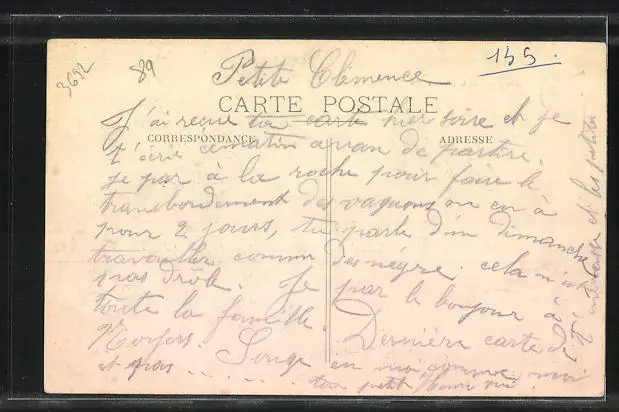 3692
89
155
Petite Clémence
CARTE POSTALE
CORRESPONDANCE
ADRESSE
J'ai reçue ta carte hier soire et je
t'écri cematin avan de partire.
je par à la roche pour faire le
transbordement des vagons on en à
pour 2 jours, tu parle d'un dimanche
travailler comme des nègre cela n'est
pas drôle. Je par le bonjour à
toute la famille. Dernière carte de
Songe en moi comme moi
et puis . . . . . . ton petit Henri